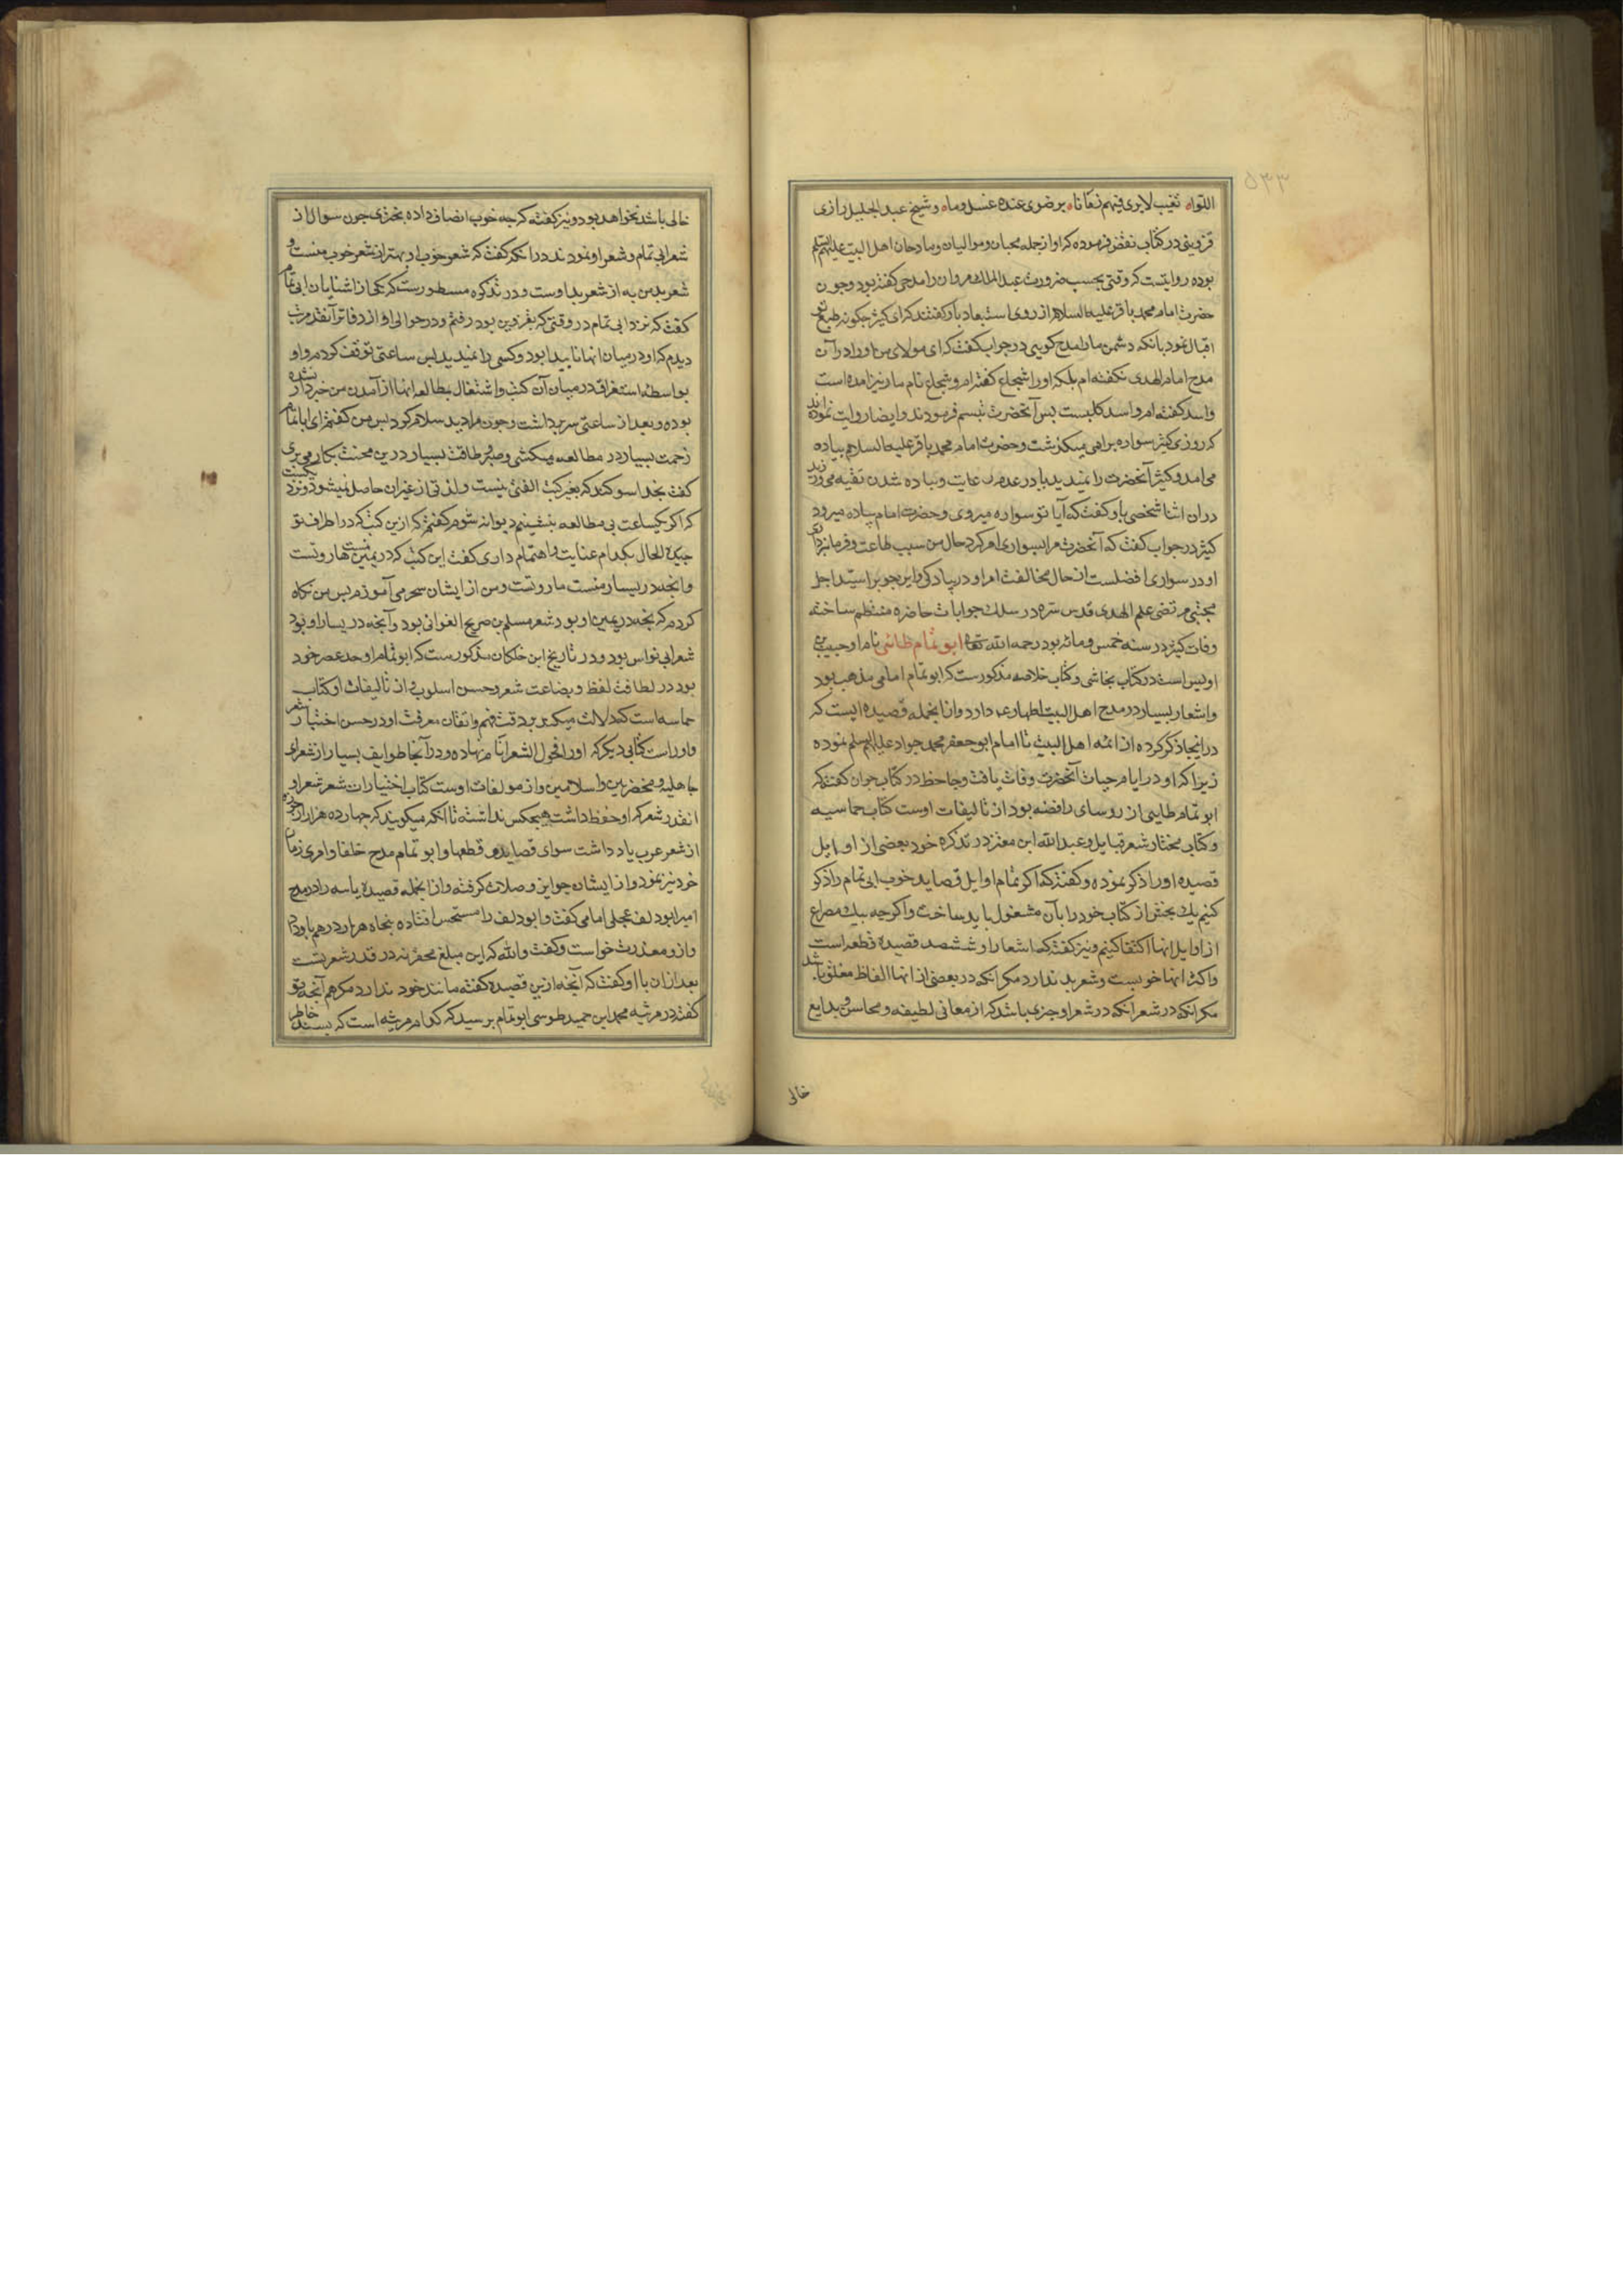 ۵۳۳
اللواه تغیب لا یری فیهم زمانا ه برضوی عنده عسل و ماء ه و شیخ عبد الجلیل رازی
قزوینی در کتاب نقض فرموده که او از جمله محبان و موالیان و مادحان اهل البیت علیهم السلم
بوده روایتست که وقتی بحسب ضرورت عبد الملک مروان را مدحی کفته بود و چون
حضرت امام محمد باقر علیه السلام از روی استبعاد باو کفتند که ای کثیر چکونه طبع تو
اقبال نمود بانکه دشمن ما را مدح کویی در جواب کفت که ای مولای من او را در آن
مدح امام الهدی نکفته ام بلکه او را شجاع کفته ام و شجاع نام مار نیز امده است
و اسد کفته ام و اسد کلبست پس آنحضرت تبسم فرمودند و ایضا روایت نموده اند
که روزی کثیر سواره براهی میکذشت و حضرت امام محمد باقر علیه السلام پیاده
می آمد و کثیر آنحضرت را نمیدید یا در عدم رعایت و پیاده شدن تقیه می ورزید
در ان اثنا شخصی باو کفت که آیا تو سواره میروی و حضرت امام پیاده میرود
کثیر در جواب کفت که آنحضرت مرا بسواری امر کرد حال من سبب طاعت و فرمانبرداری
او در سواری افضلست از حال مخالفت امر او در پیادکی و این جوابرا سید اجل
مجتبی مرتضی علم الهدی قدس سره در سلک جوابات حاضره منتظم ساخته
وفات کثیر در سنه خمس و مائه بود رحمه الله تعالی ابو تمام طائی نام او حبیب بن
اوس است در کتاب نجاشی و کتاب خلاصه مذکورست که ابو تمام امامی مذهب بود
و اشعار بسیار در مدح اهل البیت اطهار علیهم دارد و از انجمله قصیده ایست که
در اینجا ذکر کرده از ائمه اهل البیت تا امام ابو جعفر محمد جواد علیهم السلم نموده
زیرا که او در ایام حیات آنحضرت وفات یافت و جاحظ در کتاب حیوان کفته که
ابو تمام طایی از روسای رافضه بود از تالیفات اوست کتاب حماسیه
و کتاب مختار شعر قبایل و عبد الله ابن معتز در تذکره خود بعضی از اوایل
قصیده او را ذکر نموده و کفته که اکر تمام اوایل قصاید خوب ابی تمام را ذکر
کنیم یک بخش از کتاب خود را بآن مشغول باید ساخت و اکرچه بیک مصراع
از اوایل انها اکتفا کنیم و نیز کفته که اشعار او ششصد قصیده و قطعه است
و اکثر انها خوبست و شعر بد ندارد مکر انکه در بعضی از انها الفاظ مغلق باشد
مکر انکه در شعر انکه در شعر او چیزی باشد که از معانی لطیفه و محاسن و بدایع
خالی
خالی باشد نخواهد بود و نیز کفته که چه خوب انصاف داده بحتری چون سوال از
شعر ابی تمام و شعر او نمودند در انکه کفت که شعر خوب او بهتر از شعر خوب منست و
شعر بد من به از شعر بد اوست و در تذکره مسطورست که یکی از اشنایان ابی تمام
کفت که نزد ابی تمام در وقتی که بقزوین بود رفتم و در حوالی او از دفاتر آنقدر مرتب
دیدم که او در میان انها نا پیدا بود و کسی را نمیدید پس ساعتی توقف کردم و او
بواسطه استغراق در میان آن کتب و اشتغال بمطالعه انها از آمدن من خبردار نشده
بوده و بعد از ساعتی سر برداشت و چون مرا دید سلام کرد پس من کفتم ای ابا تمام
زحمت بسیار در مطالعه میکشی و صبر و طاقت بسیار درین محنت بکار می بری
کفت بخدا سوکند که بغیر کتب الفتی نیست و لذتی از غیر ان حاصل نمیشود و نزدیکست
که اکر یکساعت بی مطالعه بنشینم دیوانه شوم کفتم که ازین کتب که در اطراف تو
چیده الحال بکدام عنایت و اهتمام داری کفت این کتب که در یمین منست هاروتست
و انچه در یسار منست ماروتست و من از ایشان سحر می آموزم پس من نکاه
کردم که انچه در یمین او بود شعر مسلم بن صریع الغوانی بود و آنچه در یسار او بود
شعر ابی نواس بود و در تاریخ ابن خلکان مذکورست که ابو تمام اوحد عصر خود
بود در لطافت لفظ و بضاعت شعر و حسن اسلوب و از تالیفات او کتاب
حماسه است که دلالت میکند بر دقت فهم و اتقان معرفت او در حسن اختیار شعر
و او راست کتابی دیکر که او را فحول الشعرا نام نهاده و در آنجا طوایف بسیار از شعرای
جاهلیه و مخضرمین و اسلامیین و از مولفات اوست کتاب اختیارات شعر شعرا و
انقدر شعر که او حفظ داشت هیچکس نداشته تا انکه میکویند که چهارده هزار ارجوزه
از شعر عرب یاد داشت سوای قصاید و قطعها و ابو تمام مدح خلفا و امرای زمان
خود نیز نمود و از ایشان جوایز و صلات کرفته و از انجمله قصیده یاسه را در مدح
امیر ابو دلف عجلی امامی کفت و ابو دلف را مستحسن افتاده پنجاه هزار درهم باو داد
و ازو معذرت خواست و کفت والله که این مبلغ محقر نه در قدر شعر تست
بعد از ان با او کفت که آنچه ازین قصیده کفته مانند خود ندارد مکر هم آنچه تو
کفته در مرثیه محمد ابن حمید طوسی ابو تمام پرسید که کدام مرثیه است که پسند خاطر